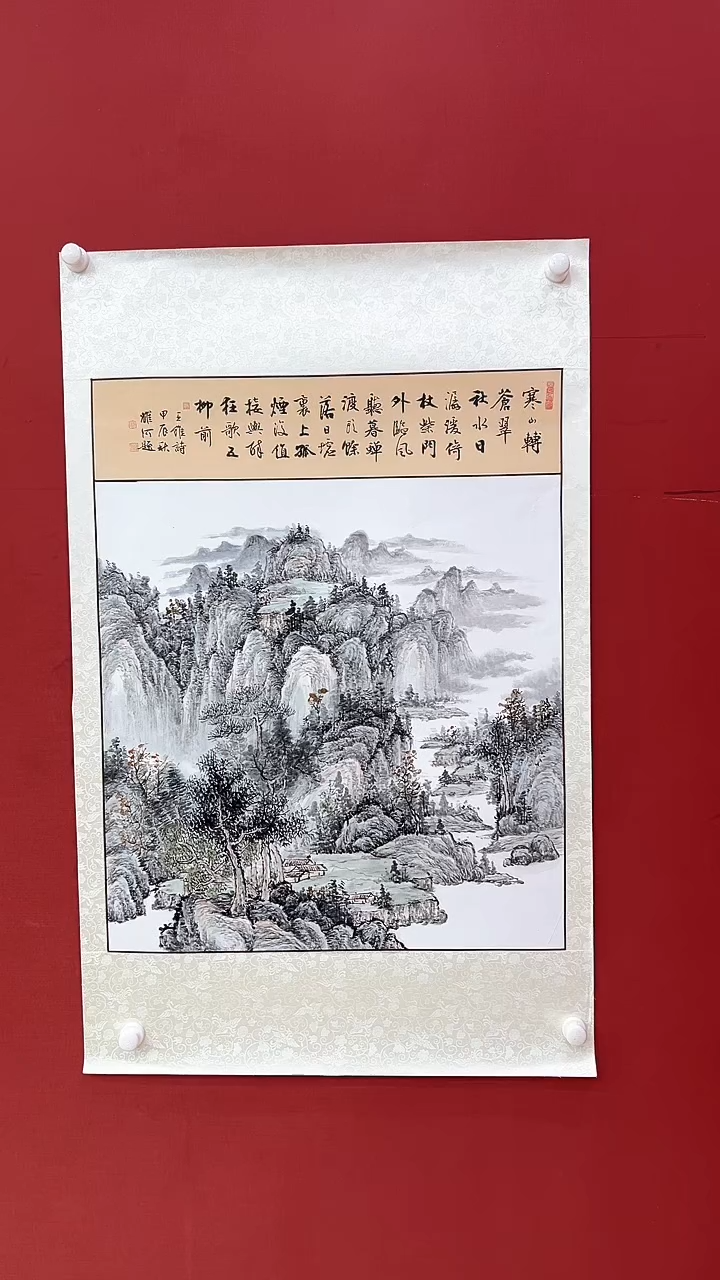 寒山轉
蒼翠
秋水日
潺湲倚
杖柴門
外臨風
聽暮蟬
渡頭餘
落日墟
裏上孤
煙復值
接輿醉
狂歌五
柳前
王維詩
甲辰秋
河題